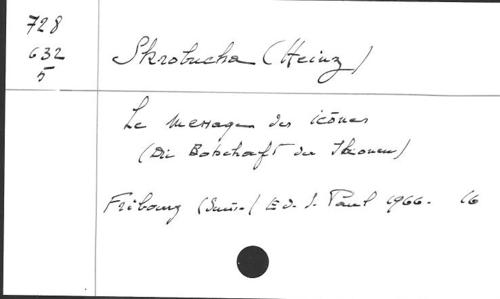 728
632
5
Skrobucha (Heinz)
Le message des icônes
(Die Botschaft der Ikonen)
Fribourg (Suis.) Ed. S. Paul 1966. 16